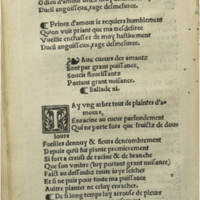 Dueil angoisseux, rage desmesuree.
Prince d'amour ie requiers humblement
Qu'on voit prinse que ma tresdesiree
Vueille enchasser de moy hastiuement
Dueil angoisseux, rage desmesuree.
Aux cueurs des amants
Sont par grant puissance,
Soucis florissants
Portant grant nuisance.
Ballade
I'ay vng arbre tout de plaintes d'a
mours
Enracine au cueur parfondement
Qui ne porte fors que fruictz de dou
lours
Fueilles dennuy & fleurs dencombrement
Depuis quil fut plante premierement
Si fort a creu de racine & de branche
Que son vmbre (luy portant grant nuisance)
Fait au dessoubz toute ioye seicher
Et si ne puis pour toute ma puissance
Aultre planter ne celuy arracher.
De si long temps la arrouse de pleur